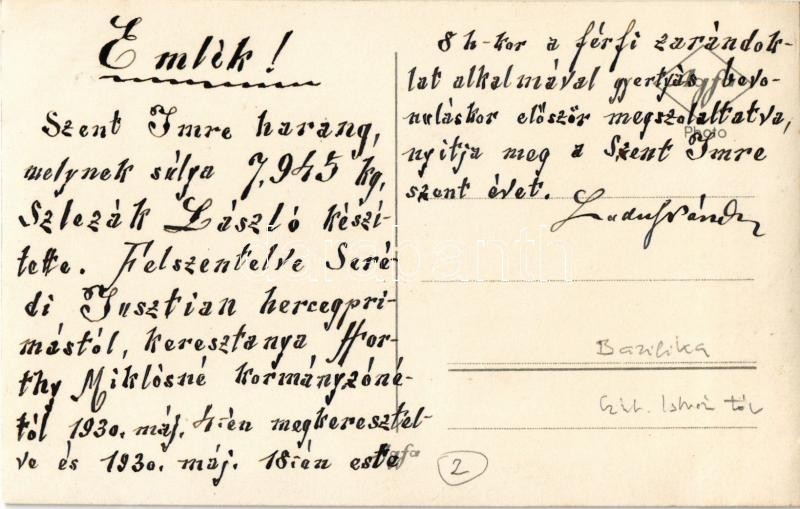 Emlék!
Szent Imre harang,
melynek súlya 7,945 kg,
Szlezák László készí-
tette. Felszentelve Seré-
di Jusztian hercegpri-
mástól, keresztanya Hor-
thy Miklósné kormányzóné-
tól 1930. máj. 4-én megkeresztel-
ve és 1930. máj. 18-án este
8 h-kor a férfi zarándok-
lat alkalmával gyertyás bevo-
nuláskor először megszólaltatva,
nyitja meg a Szent Imre
szent évet.
Agfa
Photo
Bazilika
Szt. István tér
Agfa
2
darabanth